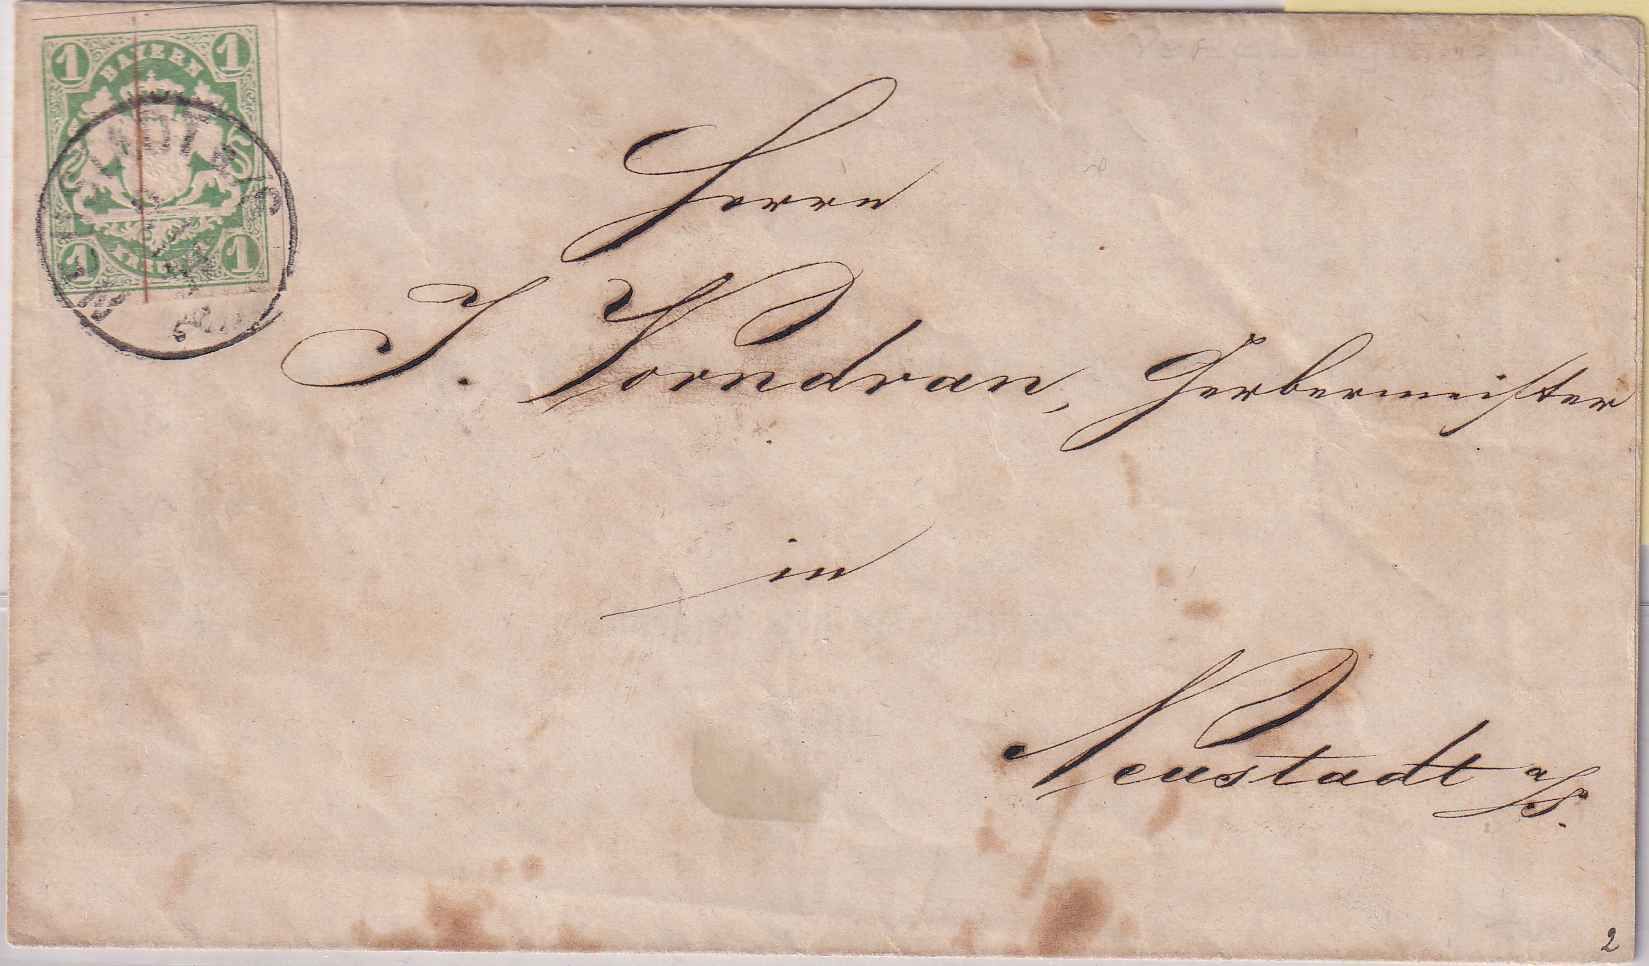 1 BAYERN 1
1 1
Herrn
J. Vorndran, Gerbermeister
in
Neustadt a/S.
2